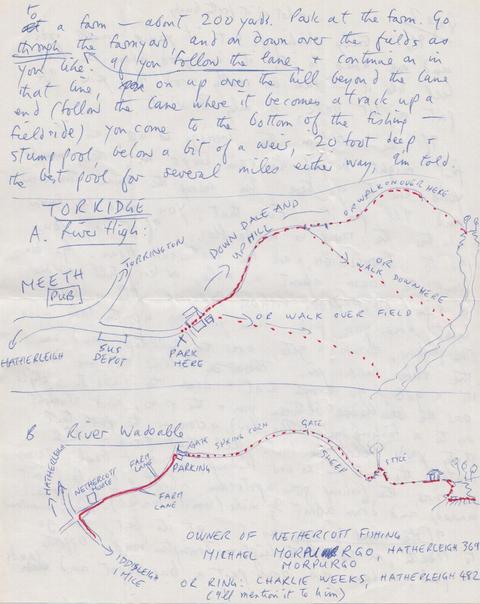 to a farm — about 200 yards. Park at the farm. Go
through the farmyard, and on down over the fields as
you like. If you follow the lane + continue on in
that line, on up over the hill beyond the lane
end (follow the lane where it becomes a track up a
fieldside) you come to the bottom of the fishing —
stump pool, below a bit of a weir, 20 foot deep +
the best pool for several miles either way, I'm told.
TORRIDGE
A. River High:
OR WALK ON OVER HERE
DOWN DALE AND
UP HILL
TORRINGTON
MEETH
PUB
OR
WALK DOWN HERE
OR WALK OVER FIELD
HATHERLEIGH
BUS
DEPOT
PARK
HERE
B River Wadeable
GATE SPRING CORN
GATE
SHEEP
STILE
HATHERLEIGH
FARM
LANE
PARKING
NETHERCOTT
HOUSE
FARM
LANE
IDDESLEIGH
1 MILE
OWNER OF NETHERCOTT FISHING
MICHAEL MORPURGO, HATHERLEIGH 369
MORPURGO
OR RING: CHARLIE WEEKS, HATHERLEIGH 482
(I'll mention it to him)